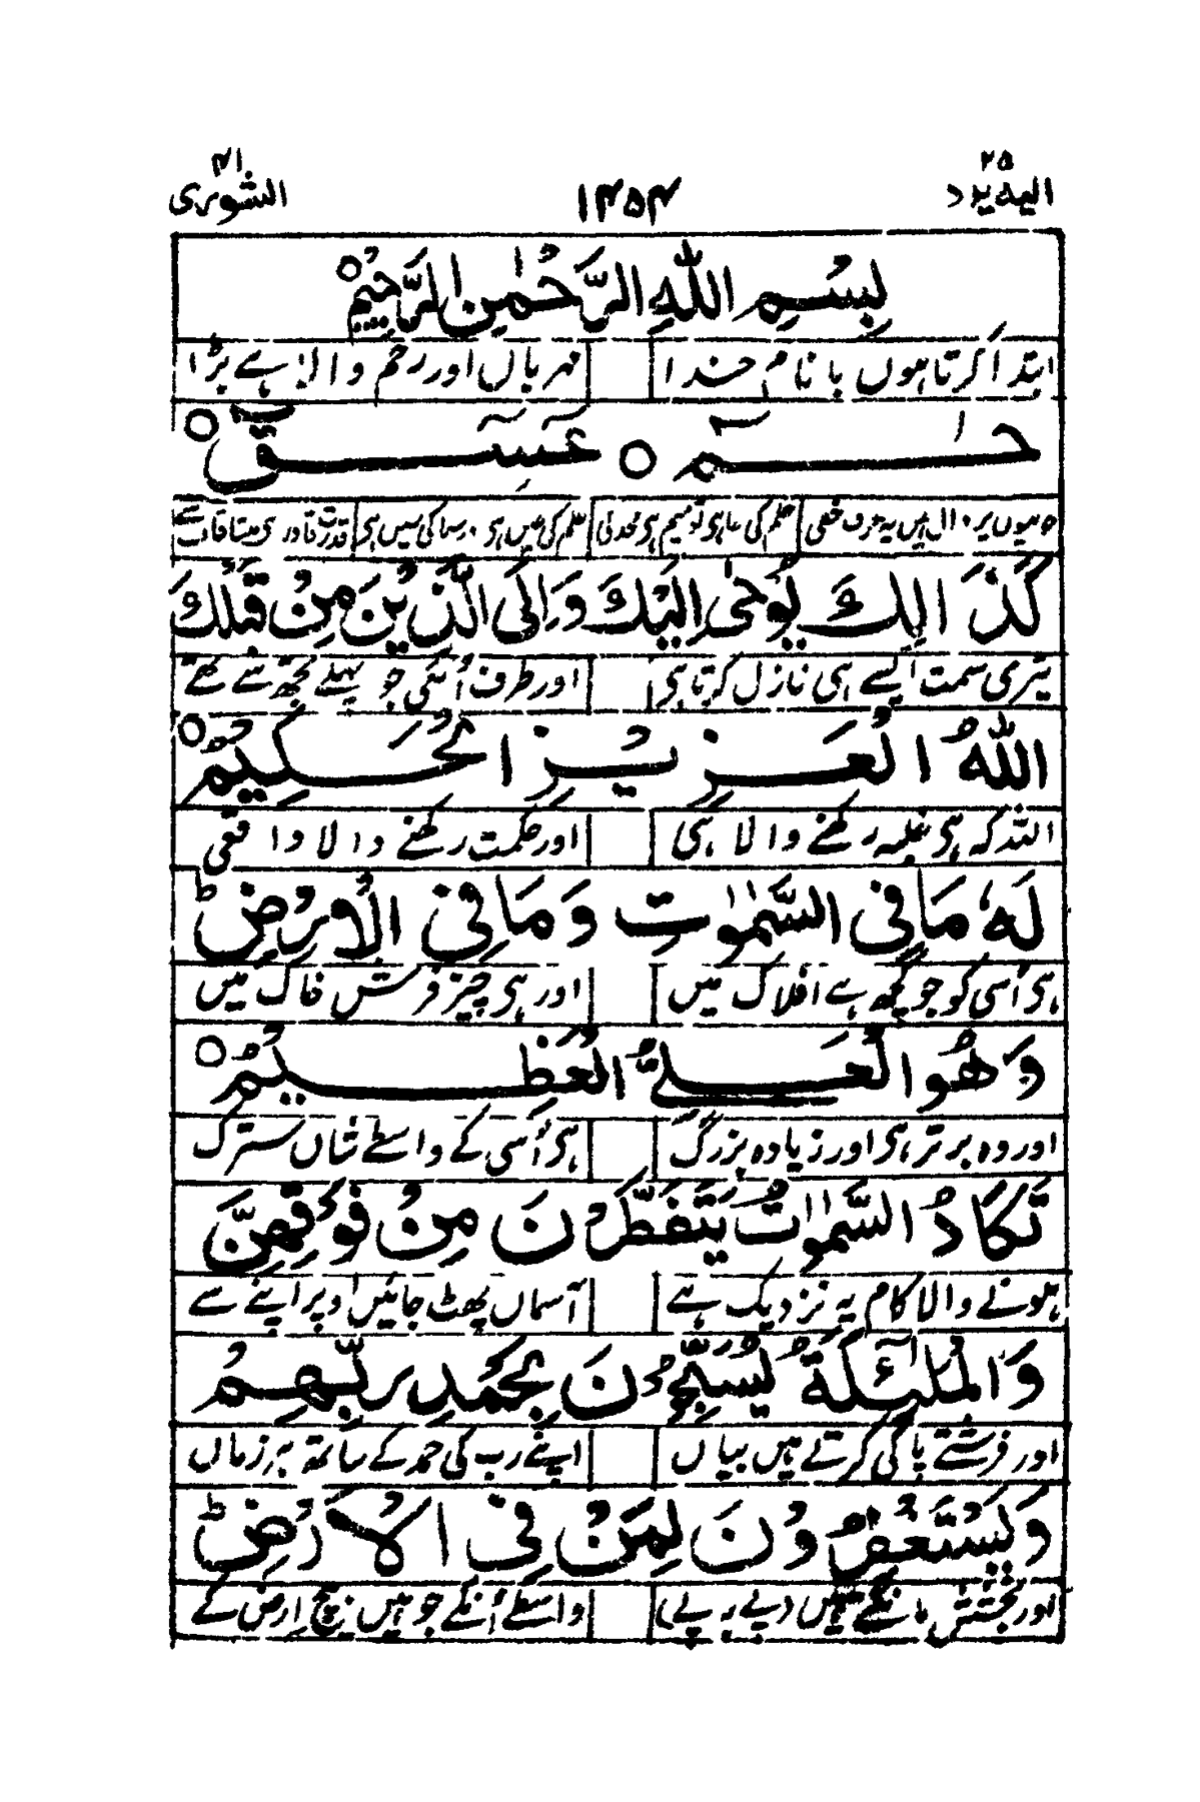 ۲۵ ۴۱
الیه یرد ۱۴۵۴ الشوری
بِسْمِ اللهِ الرَّحْمٰنِ الرَّحِیْمِ ○
ابتدا کرتا ہوں با نام خدا مہرباں اور رحم والا ہے بڑا
حٰـمٓ ○ عٓسٓقٓ ○
علم کی
كَذٰلِكَ یُوْحٰۤی اِلَیْكَ وَ اِلَی الَّذِیْنَ مِنْ قَبْلِكَ
تیری سمت ایسے ہی نازل کرتا ہی اور طرف اُنکی جو پہلے تجھ سے تھے
اللهُ الْعَزِیْزُ الْحَكِیْمُ ○
اللہ کہ ہی غلبہ رکھنے والا ہی اور حکمت رکھنے والا واقعی
لَهٗ مَا فِی السَّمٰوٰتِ وَ مَا فِی الْاَرْضِ ؕ
ہی اُسی کو جو کچھ ہے افلاک میں اور ہی چیز فرش خاک میں
وَ هُوَ الْعَلِیُّ الْعَظِیْمُ ○
اور وہ برتر ہی اور زیادہ بزرگ ہی اُسی کے واسطے شاں سترک
تَكَادُ السَّمٰوٰتُ یَتَفَطَّرْنَ مِنْ فَوْقِهِنَّ
ہونے والا کام یہ نزدیک ہے آسماں پھٹ جائیں اوپر اپنے سے
وَ الْمَلٰٓئِكَةُ یُسَبِّحُوْنَ بِحَمْدِ رَبِّهِمْ
اور فرشتے پاکی کرتے ہیں بیاں اپنے رب کی حمد کے ساتھ ہر زماں
وَ یَسْتَغْفِرُوْنَ لِمَنْ فِی الْاَرْضِ ؕ
اور بخشش مانگتے ہیں واسطے اُنکے جو ہیں بیچ ارض کے